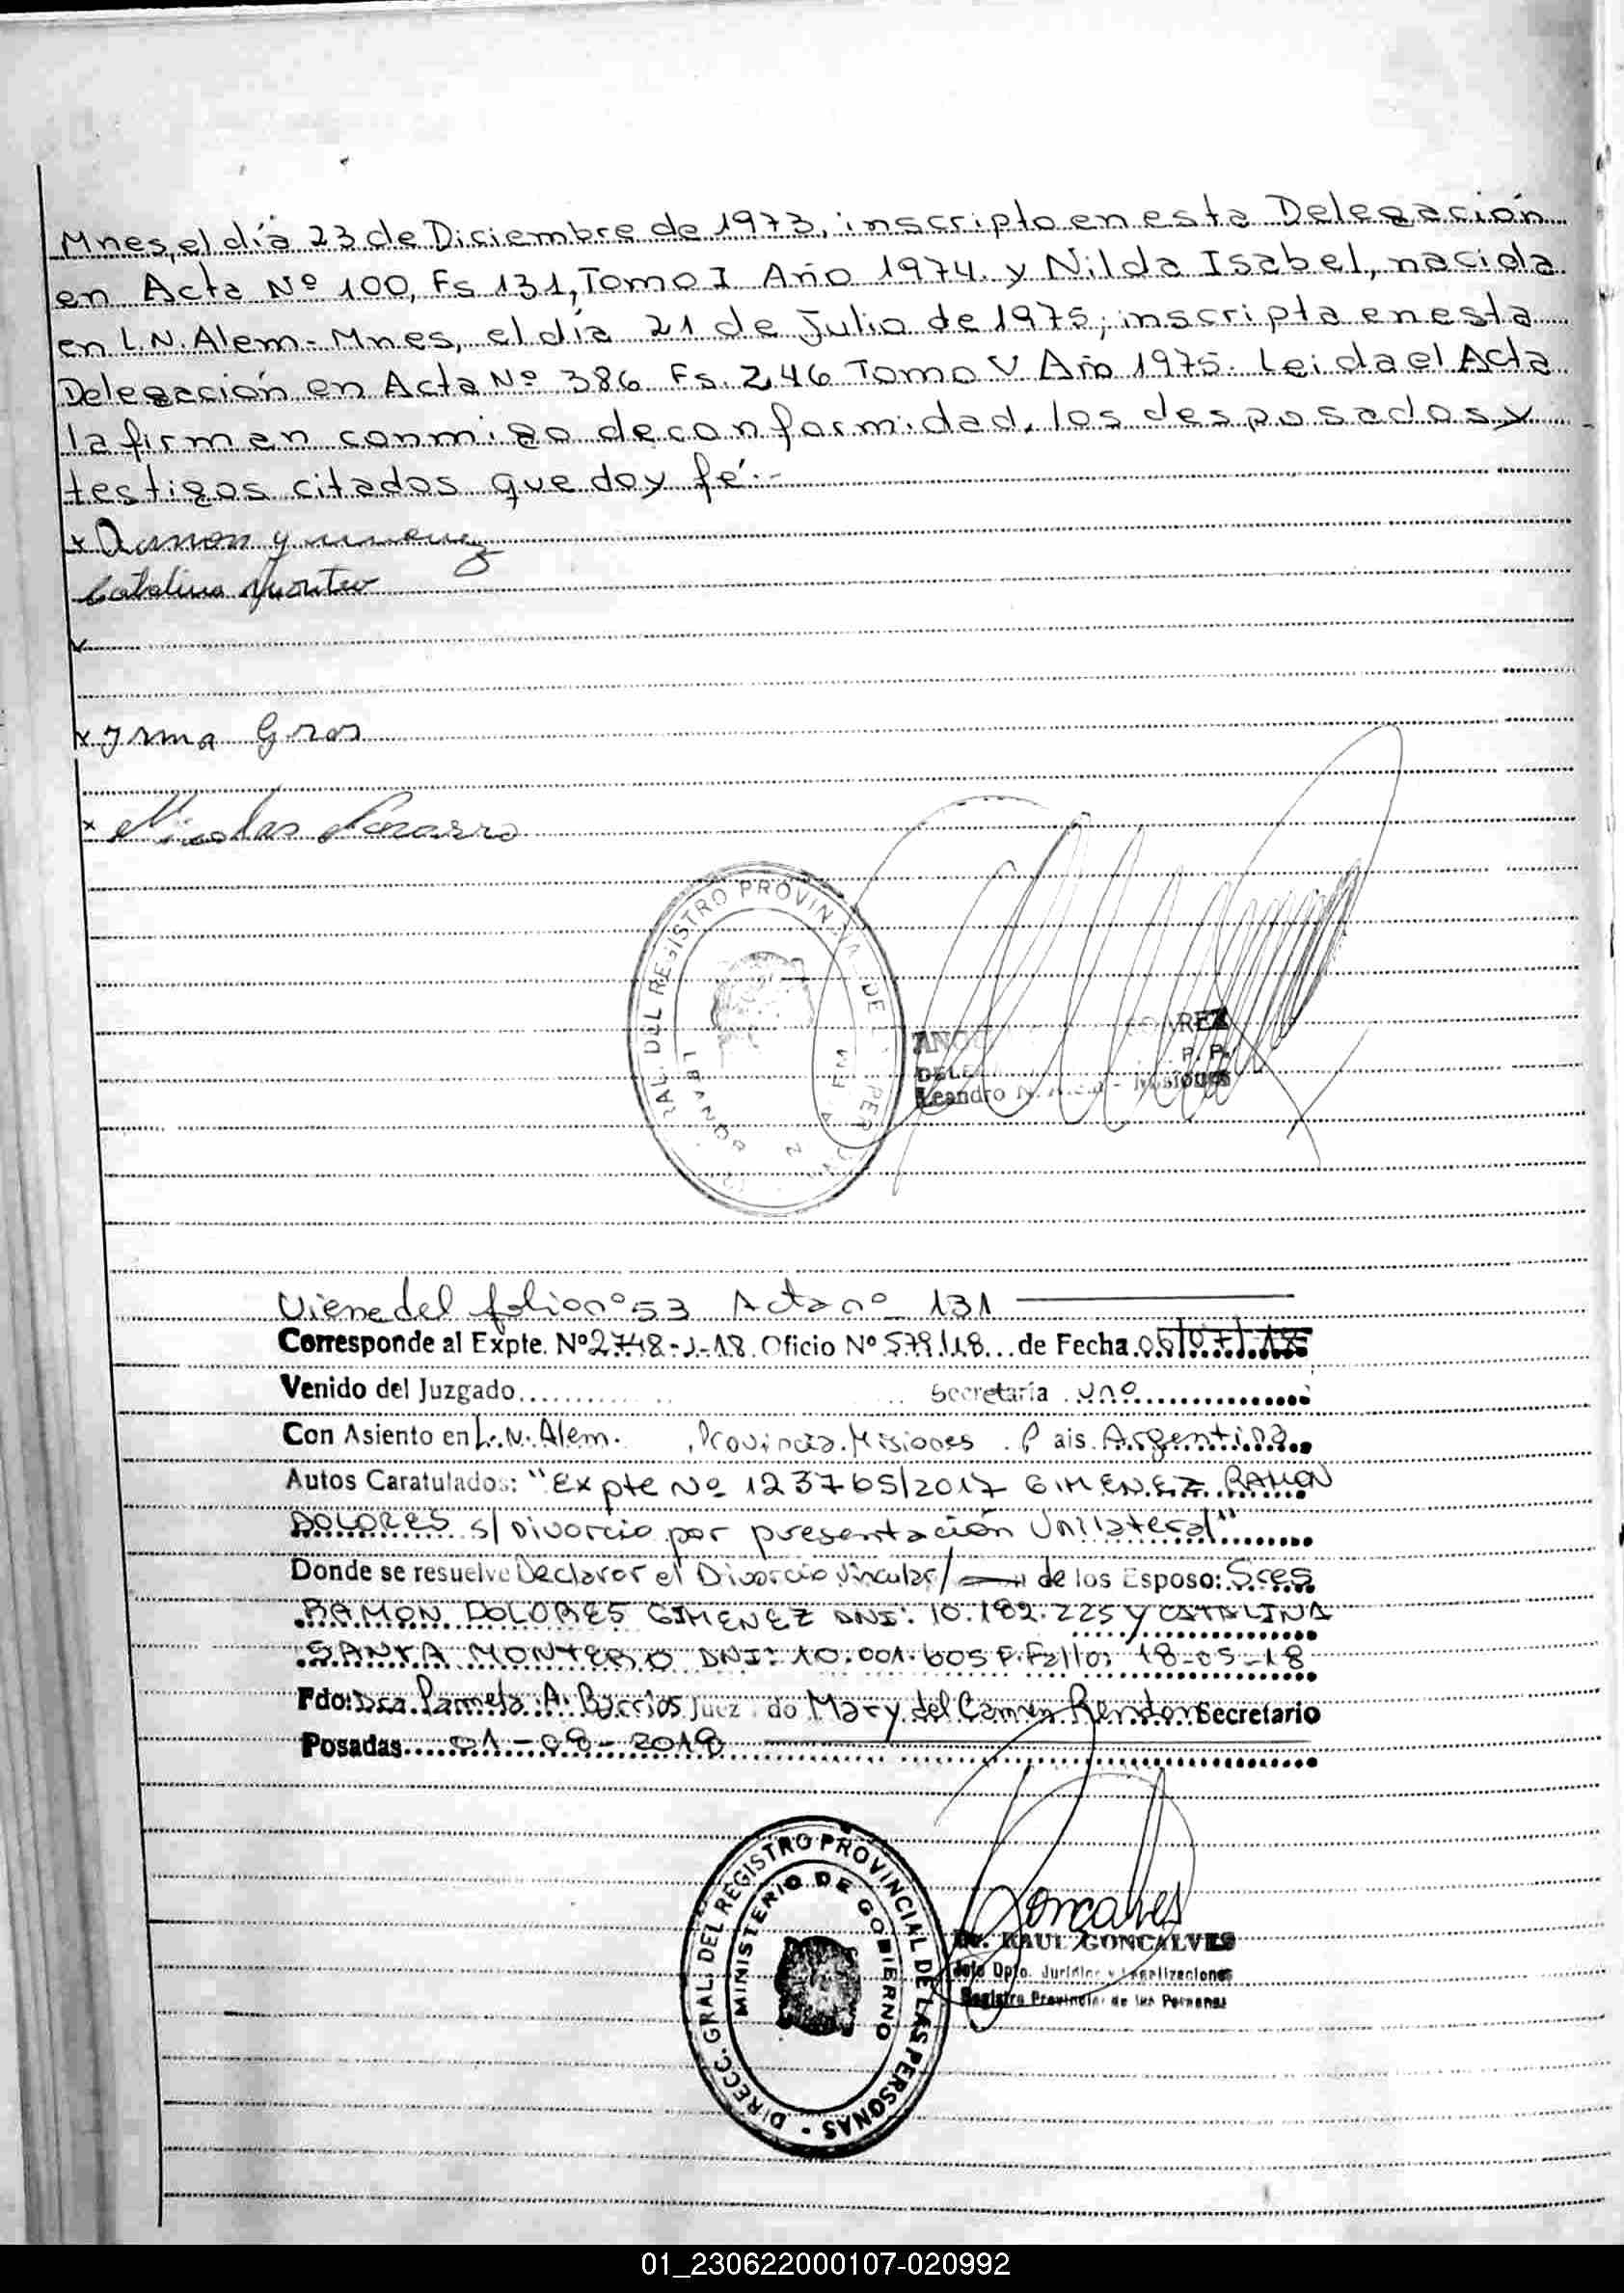 Mnes, el día 23 de Diciembre de 1973, inscripto en esta Delegación
en Acta Nº 100, Fs 131, Tomo I Año 1974. y Nilda Isabel, nacida
en L.N. Alem - Mnes, el día 21 de Julio de 1975, inscripta en esta
Delegación en Acta Nº 386 Fs. 246 Tomo V Año 1975. Leida el Acta
la firman conmigo de conformidad, los desposados y
testigos citados que doy fé.-
x Ramon
Catalina
x
x Irma Gros
x Nicolas
DEL REGISTRO PROVIN DE
REZ
P. P.
DELE
Leandro N. Alem - Misiones
Viene del folio nº 53 Acta nº 131
Corresponde al Expte. Nº 2748-J-18. Oficio Nº 579/18 de Fecha 05/07/18
Venido del Juzgado Secretaría Uno
Con Asiento en L.N. Alem. Provincia Misiones Pais Argentina
Autos Caratulados: "Expte Nº 123765/2017 GIMENEZ RAMON
DOLORES s/ Divorcio por presentación Unilateral"
Donde se resuelve Declarar el Divorcio Vincular/ de los Esposo: Sres
RAMON DOLORES GIMENEZ DNI: 10.182.225 y CATALINA
SANTA MONTERO DNI: 10.001.605 F. Fallo: 18-05-18
Fdo: Dra Pamela A. Barrios Juez do Mary del Carmen Rendon Secretario
Posadas 01-08-2018
DIRECC. GRAL. DEL REGISTRO PROVINCIAL DE LAS PERSONAS -
MINISTERIO DE GOBIERNO
Goncalves
Dr. RAUL GONCALVES
Jefe Dpto. Jurídico y Legalizaciones
Registro Provincial de las Personas
01_230622000107-020992